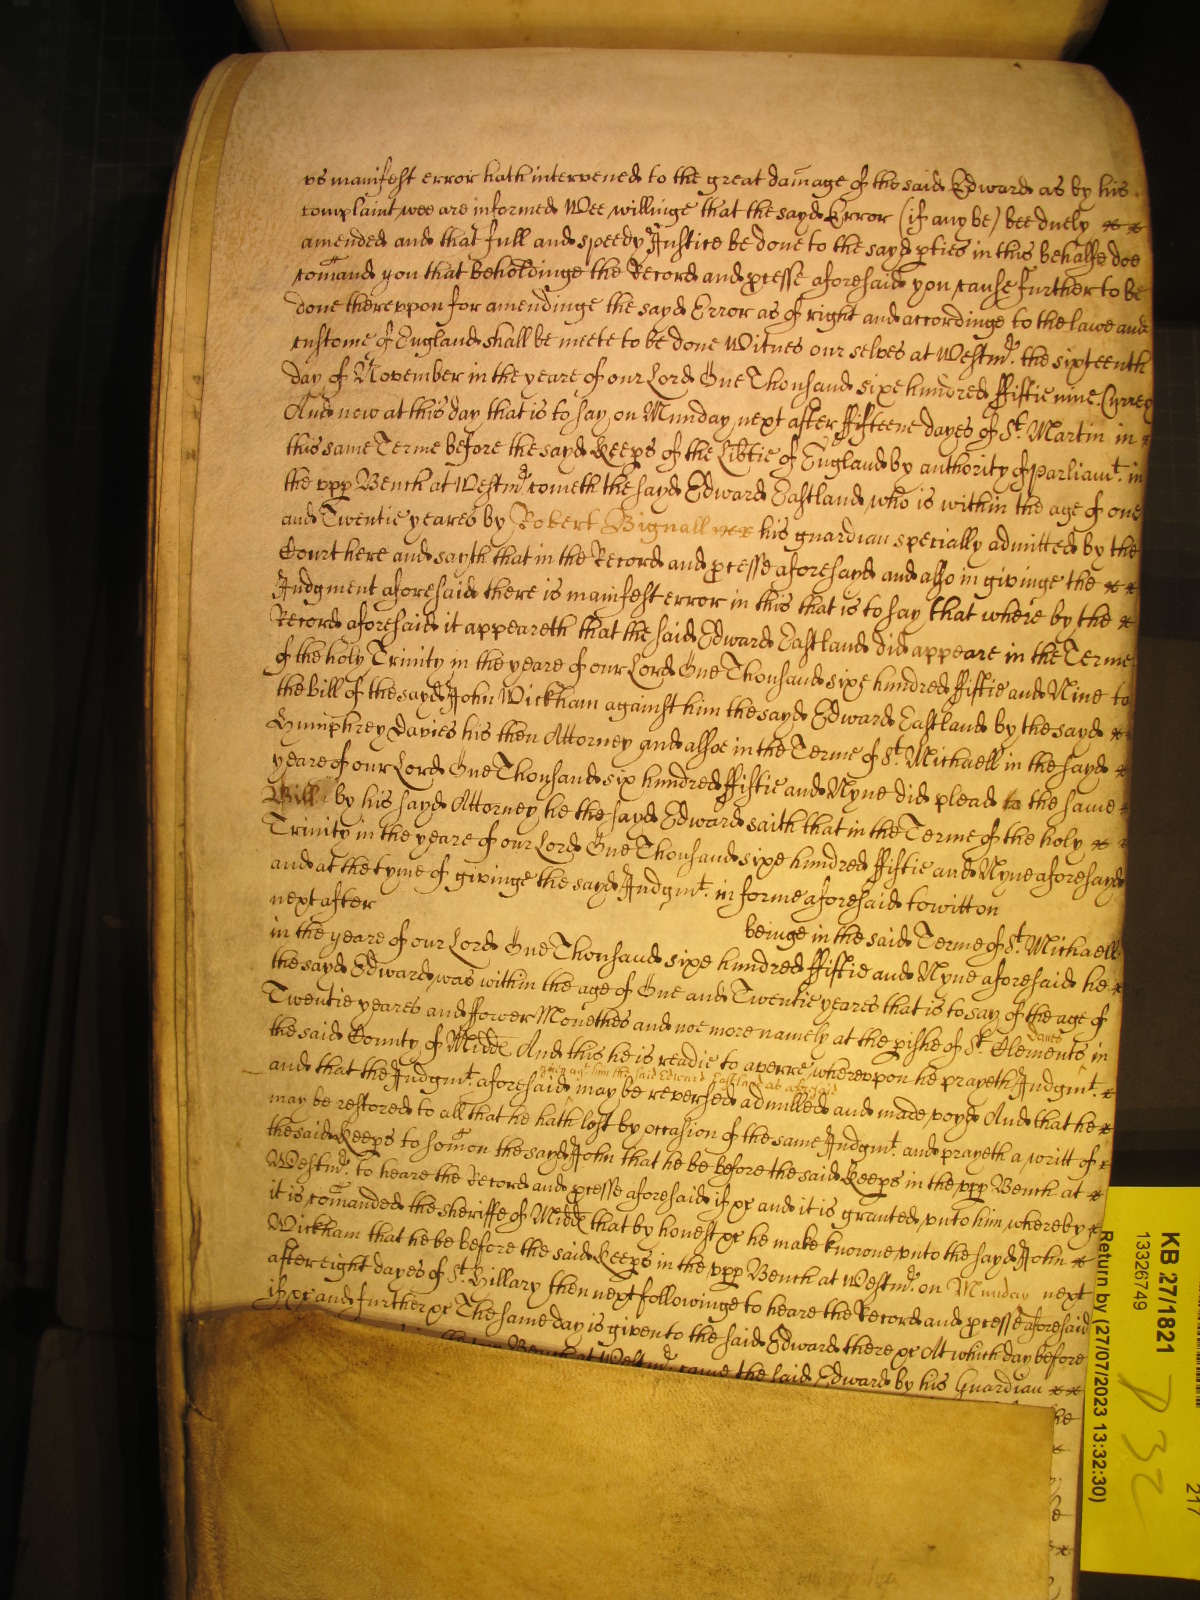 ys manifest error hath intervened to the great damage of the said Edward as by his
complaint wee are informed Wee willinge that the sayd Error (if any be) bee duely
amended and that full and speedy Justice be done to the sayd pties in this behalfe doe
comand you that beholdinge the Record and pcesse aforesaid you cause further to be
done thereuppon for amendinge the sayd Error as of right and accordinge to the lawe and
custome of England shall be meete to be done Witnes our selves at Westmr. the sixteenth
day of November in the yeare of our Lord One Thousand sixe hundred ffiftie nine
And now at this day that is to say on Munday next after ffifteene dayes of St. Martin in
this same Terme before the sayd Keeps of the Libtie of England by authority of parliamt. in
the upp Bench at Westmr. cometh the sayd Edward Eastland who is within the age of one
and Twentie yeares by Robert Bignall his guardian specially admitted by the
Court here and sayth that in the Record and pcesse aforesayd and also in givinge the
Judgment aforesaid there is manifest error in this that is to say that where by the
Record aforesaid it appeareth that the said Edward Eastland did appeare in the Terme
of the holy Trinity in the yeare of our Lord One Thousand sixe hundred ffiftie and Nine to
the bill of the sayd John Wickham against him the sayd Edward Eastland by the sayd
Humphrey Davies his then Attorney and alsoe in the Terme of St. Michaell in the sayd
yeare of our Lord One Thousand six hundred ffiftie and Nyne did plead to the same
Bill by his sayd Attorney he the sayd Edward saith that in the Terme of the holy
Trinity in the yeare of our Lord One Thousand sixe hundred ffiftie and Nyne aforesayd
and at the tyme of givinge the sayd Judgmt. in forme aforesaid to witt on
next after beinge in the said Terme of St. Michaell
in the yeare of our Lord One Thousand sixe hundred ffiftie and Nyne aforesaid he
the sayd Edward was within the age of One and Twentie yeares that is to say of the age of
Twentie yeares and ffower Monethes and noe more namely at the pishe of St. Clements Danes in
the said County of Midd And this he is readie to averre whereupon he prayeth Judgmt.
and that the Judgmt. aforesaid given agt him the said Edward Eastland as aforesaid may be reversed adnulled and made voyd And that he
may be restored to all that he hath lost by occasion of the same Judgmt. and prayeth a writt of
the said Keeps to somon the sayd John that he be before the said Keeps in the upp Bench at
Westmr. to heare the Record and pcesse aforesaid if &c and it is granted unto him whereby
it is comanded the sheriffe of Midd that by honest &c he make knowne unto the sayd John
Wickham that he be before the said Keeps in the upp Bench at Westmr. on Munday next
after eight dayes of St. Hillary then next followinge to heare the Record and pcesse aforesaid
if &c and further &c The same day is given to the said Edward there &c At which day before
Bench at Westmr. came the said Edward by his Guardian
KB 27/1821
13326749
Return by (27/07/2023 13:32:30)
217